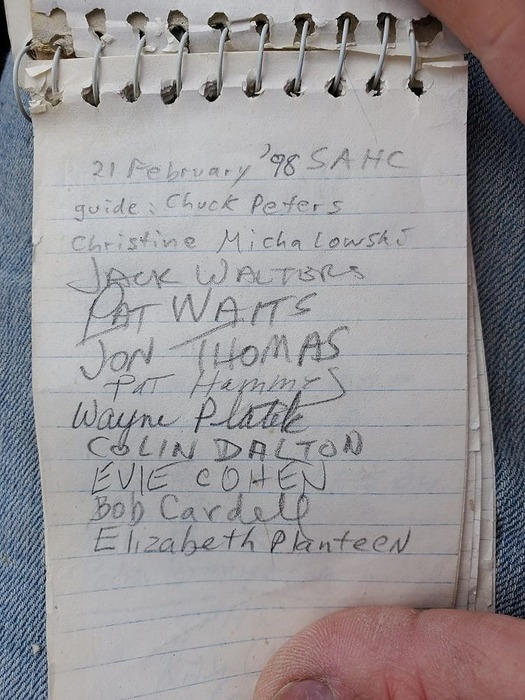 21 February '98 SAHC
guide: Chuck Peters
Christine Michalowski
JACK WALTERS
PAT WAITS
JON THOMAS
Pat Hammes
Wayne Platek
COLIN DALTON
EVIE COHEN
Bob Cardell
Elizabeth Planteen